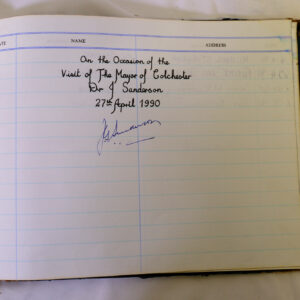 DATE NAME ADDRESS
On the Occasion of the
Visit of The Mayor of Colchester
Dr J Sanderson
27th April 1990
JSanderson